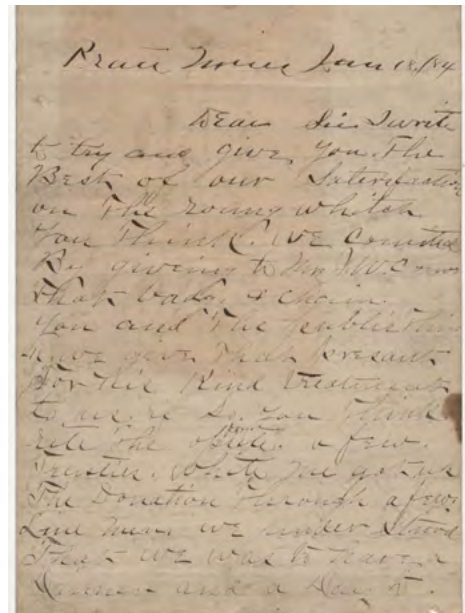 Pratt Mines Jan 18/84
Dear Sir I write
to try and give you the
Best of our Satisfaction
on The roung whitch
You Think. WE Comited
By giving to Mr J.W.C
That badg & chain.
You and The public Think
we give That presant
For his Kind Treatment
to us. so You Think
rite The a few.
Trusties. White got up
The Donation Through a few
Line Trustees we under Stood
That we was to have a
Dinner and a Day